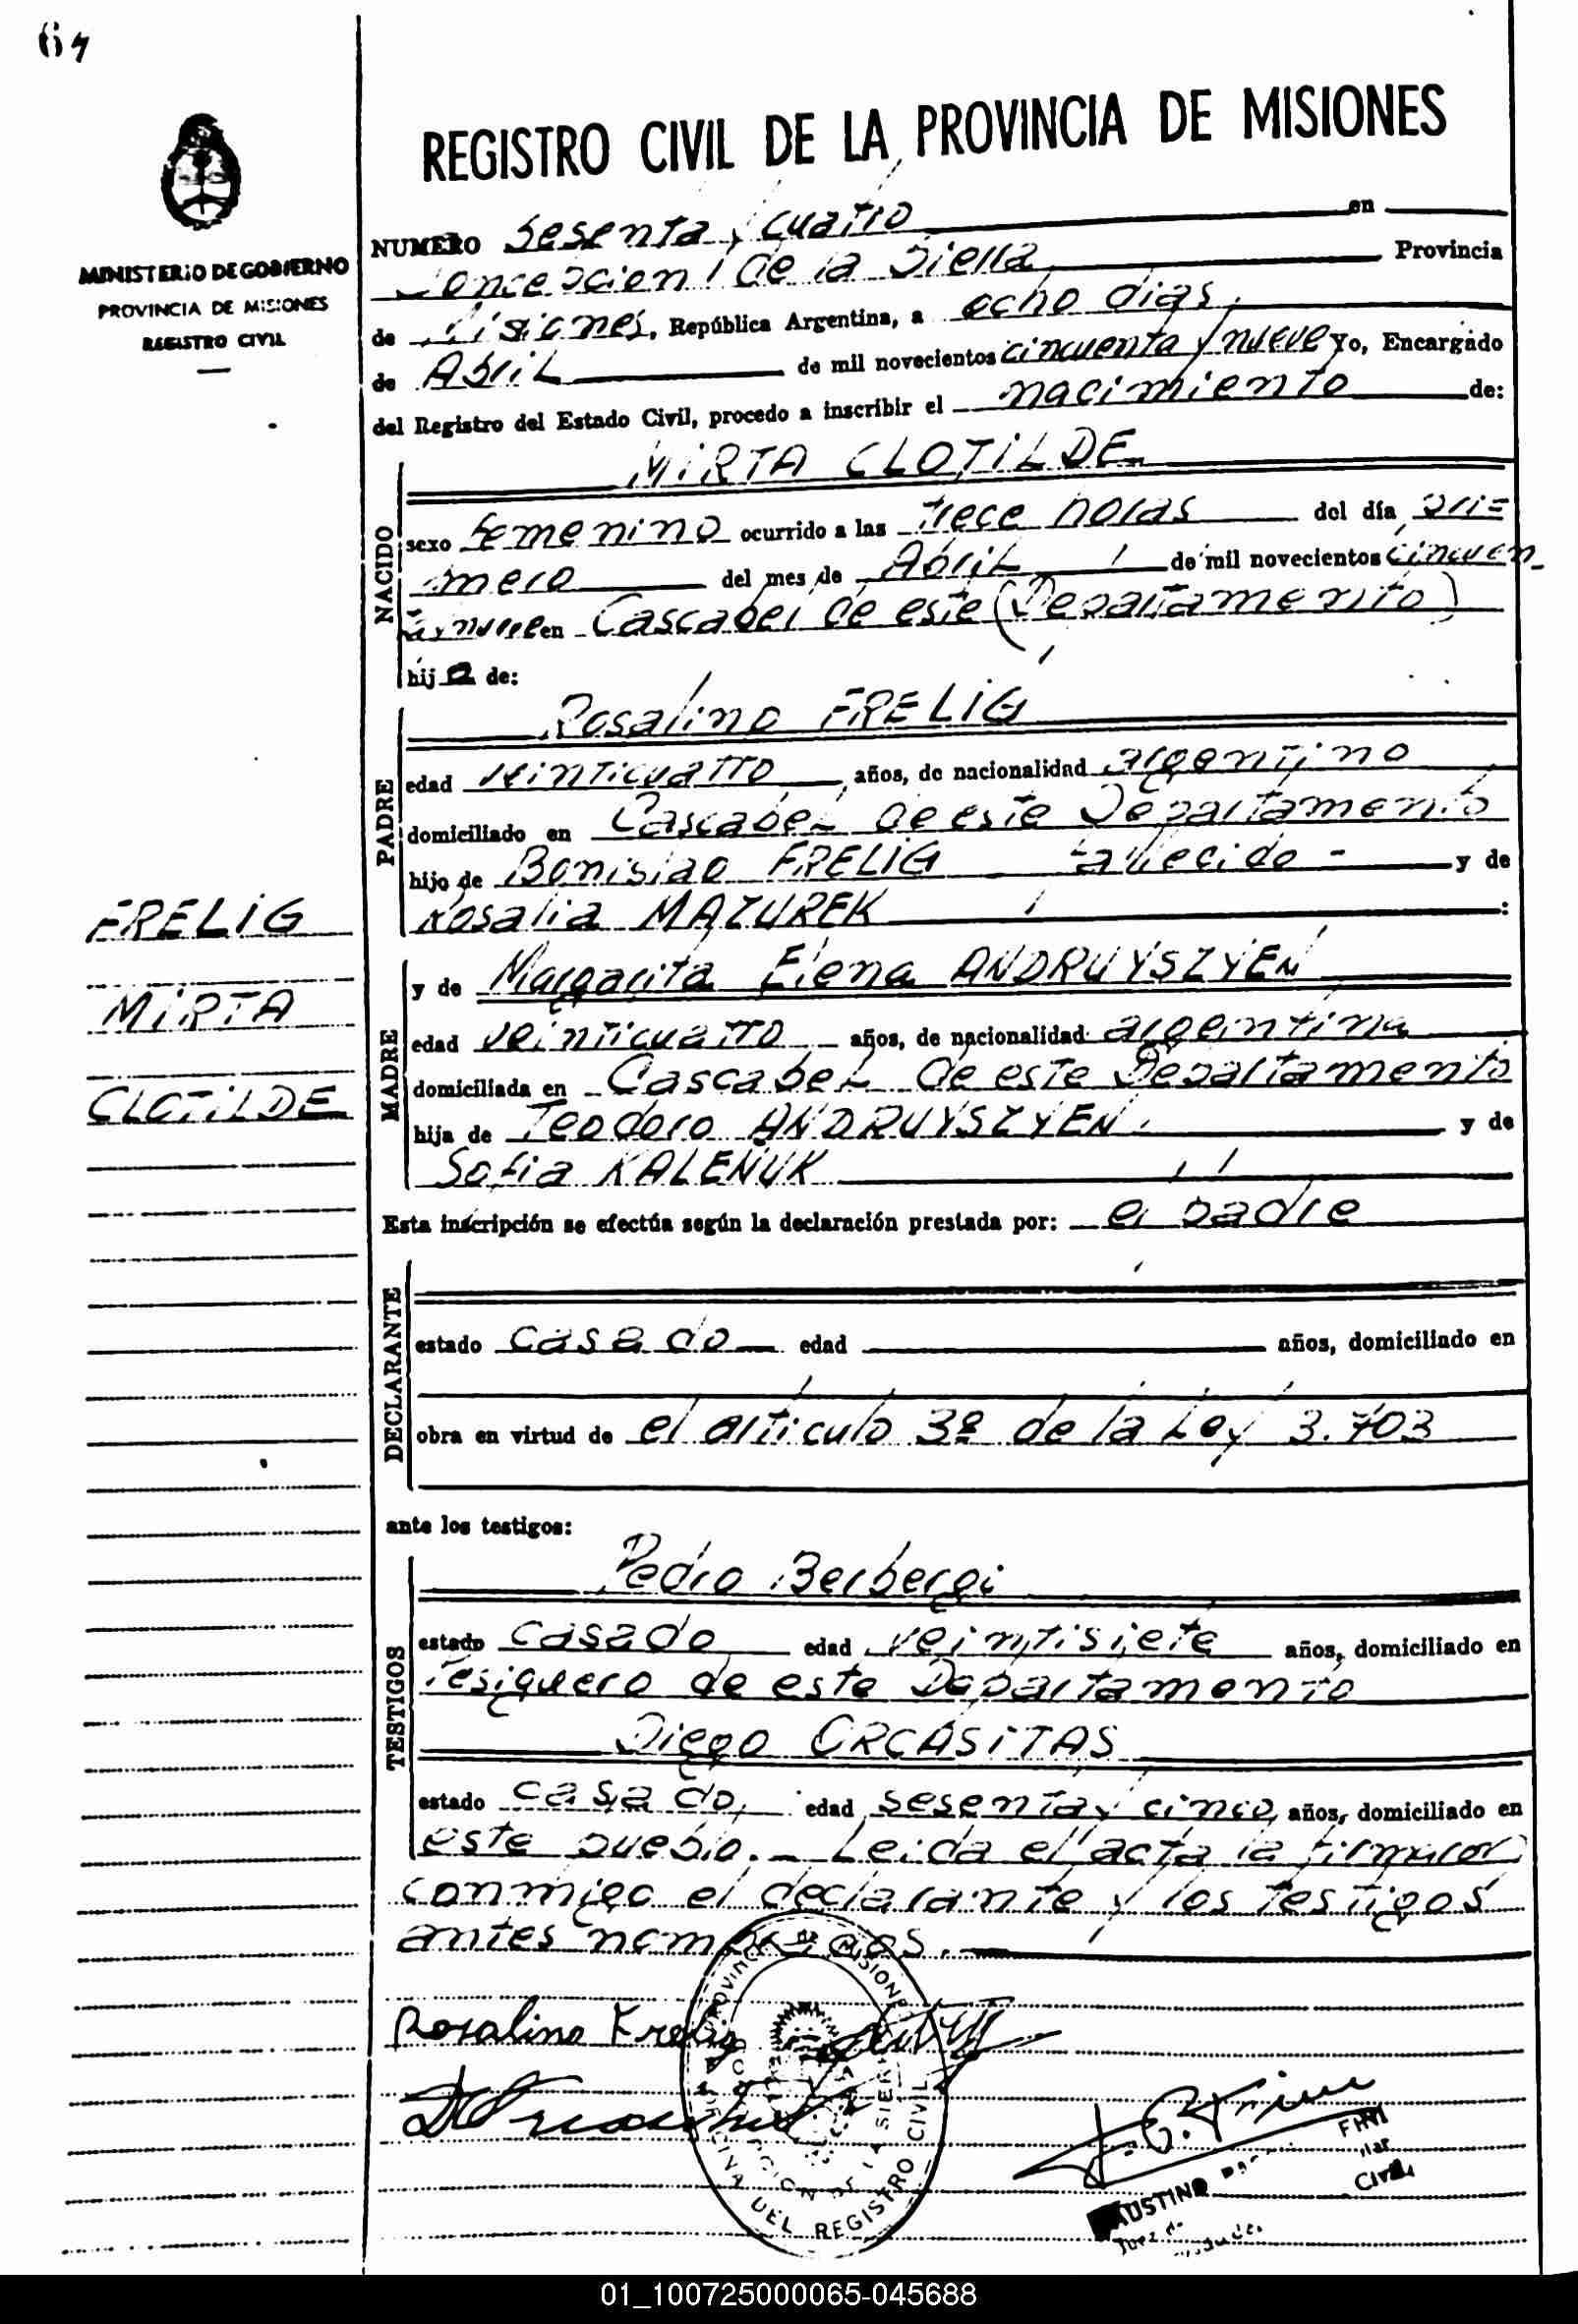 64
REGISTRO CIVIL DE LA PROVINCIA DE MISIONES
MINISTERIO DE GOBIERNO
PROVINCIA DE MISIONES
REGISTRO CIVIL
NUMERO Sesenta y cuatro en
Concepcion de la Sierra Provincia
de Misiones, República Argentina, a ocho dias
de Abril de mil novecientos cincuenta y nueve Yo, Encargado
del Registro del Estado Civil, procedo a inscribir el nacimiento de:
NACIDO
MIRTA CLOTILDE
sexo femenino ocurrido a las trece horas del día pri=
mero del mes de Abril de mil novecientos cincuen_
ta y nueve en Cascabel de este (Departamento)
hija de:
PADRE
Rosalino FRELIG
edad veinticuatro años, de nacionalidad argentino
domiciliado en Cascabel de este Departamento
hijo de Bonislao FRELIG fallecido - y de
Rosalia MAZUREK :
FRELIG
MIRTA
CLOTILDE
MADRE
y de Margarita Elena ANDRUYSZYEN
edad veinticuatro años, de nacionalidad argentina
domiciliada en Cascabel de este Departamento
hija de Teodoro ANDRUYSZYEN y de
Sofia KALEÑUK
Esta inscripción se efectúa según la declaración prestada por: el padre
DECLARANTE
estado casado edad años, domiciliado en
obra en virtud de el articulo 3º de la Ley 3.703
ante los testigos:
TESTIGOS
Pedro Berbergi
estado casado edad veintisiete años, domiciliado en
Persiguero de este Departamento
Diego ORCASITAS
estado casado, edad sesenta y cinco años, domiciliado en
este pueblo.- Leida el acta la firmaron
conmigo el declarante y los testigos
antes nombrados.
Rosalino Frelig
PROVINCIA DE MISIONES
DEL REGISTRO CIVIL
DE LA SIERRA
FAUSTINO
FINI
Juez de
Civil
01_100725000065-045688